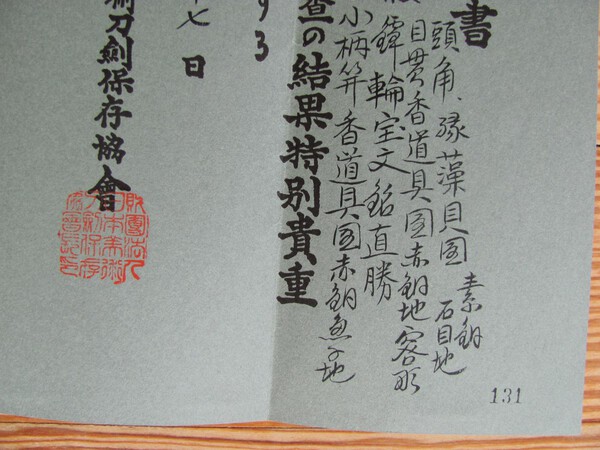 書
頭角、縁藻貝図
素銅
石目地
目貫香道具図赤銅地容彫
鐔輪宝文銘直勝
小柄笄香道具図赤銅魚子地
査の結果特別貴重
する
七日
術刀劍保存協會
財團法人
日本美術
刀劍保存
協會之印
131